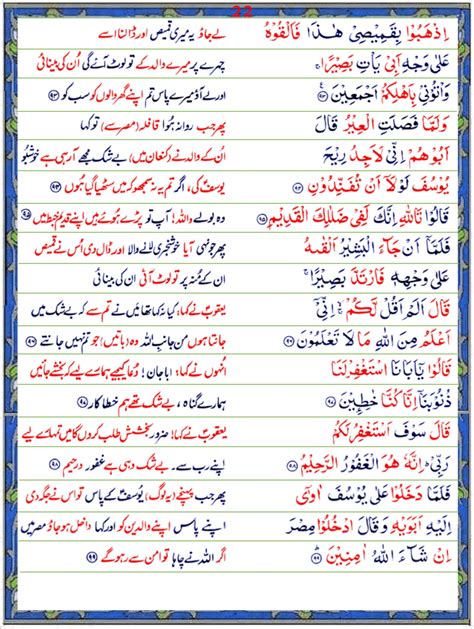 22
اِذْهَبُوْا بِقَمِيْصِىْ هٰذَا فَاَلْقُوْهُ لے جاؤ یہ میری قمیص اور ڈالنا اسے
عَلٰى وَجْهِ اَبِىْ يَاْتِ بَصِيْرًا ۚ چہرے پر میرے والد کے تو لوٹ آئے گی اُن کی بینائی
وَاْتُوْنِىْ بِاَهْلِكُمْ اَجْمَعِيْنَ ۹۳ اور لے آؤ میرے پاس تم اپنے گھر والوں کو سب کو ۹۳
وَلَمَّا فَصَلَتِ الْعِيْرُ قَالَ پھر جب روانہ ہُوا قافلہ (مصر سے) تو کہا
اَبُوْهُمْ اِنِّىْ لَاَجِدُ رِيْحَ اُن کے والد نے (کنعان میں) بے شک مجھے آ رہی ہے خوشبو
يُوْسُفَ لَوْلَاۤ اَنْ تُفَنِّدُوْنِ ۹۴ یوسفؑ کی، اگر تم یہ نہ سمجھو کہ میں سٹھیا گیا ہوں ۹۴
قَالُوْا تَاللّٰهِ اِنَّكَ لَفِىْ ضَلٰلِكَ الْقَدِيْمِ ۹۵ وہ بولے واللہ! آپ تو پڑے ہوئے ہیں اپنے قدیم خبط میں ۹۵
فَلَمَّاۤ اَنْ جَآءَ الْبَشِيْرُ اَلْقٰىهُ پھر جونہی آیا خوشخبری لانے والا اور ڈال دی اُس نے قمیص
عَلٰى وَجْهِهٖ فَارْتَدَّ بَصِيْرًا ۚ اُن کے مُنہ پر تو لوٹ آئی اُن کی بینائی
قَالَ اَلَمْ اَقُلْ لَّكُمْ ۚ اِنِّىْۤ یعقوبؑ نے کہا، کیا نہ کہا تھا میں نے تم سے کہ بے شک میں
اَعْلَمُ مِنَ اللّٰهِ مَا لَا تَعْلَمُوْنَ ۹۶ جانتا ہوں من جانب اللہ وہ (باتیں) جو تم نہیں جانتے ۹۶
قَالُوْا يٰۤاَبَانَا اسْتَغْفِرْ لَنَا اُنہوں نے کہا! ابا جان! دُعا کیجیے ہمارے لیے کہ بخشے جائیں
ذُنُوْبَنَاۤ اِنَّا كُنَّا خٰطِـِٕيْنَ ۹۷ ہمارے گناہ، بے شک تھے ہم خطا کار ۹۷
قَالَ سَوْفَ اَسْتَغْفِرُ لَكُمْ یعقوبؑ نے کہا! ضرور بخشش طلب کروں گا میں تمہارے لیے
رَبِّىْ ؕ اِنَّهٗ هُوَ الْغَفُوْرُ الرَّحِيْمُ ۹۸ اپنے رب سے۔ بے شک وہی ہے غفور رحیم ۹۸
فَلَمَّا دَخَلُوْا عَلٰى يُوْسُفَ اٰوٰۤى پھر جب پہنچے (یہ لوگ) یوسفؑ کے پاس تو اس نے جگہ دی
اِلَيْهِ اَبَوَيْهِ وَقَالَ ادْخُلُوْا مِصْرَ اپنے پاس اپنے والدین کو اور کہا داخل ہو جاؤ مصر میں
اِنْ شَآءَ اللّٰهُ اٰمِنِيْنَ ۹۹ اگر اللہ نے چاہا تو امن سے رہو گے ۹۹